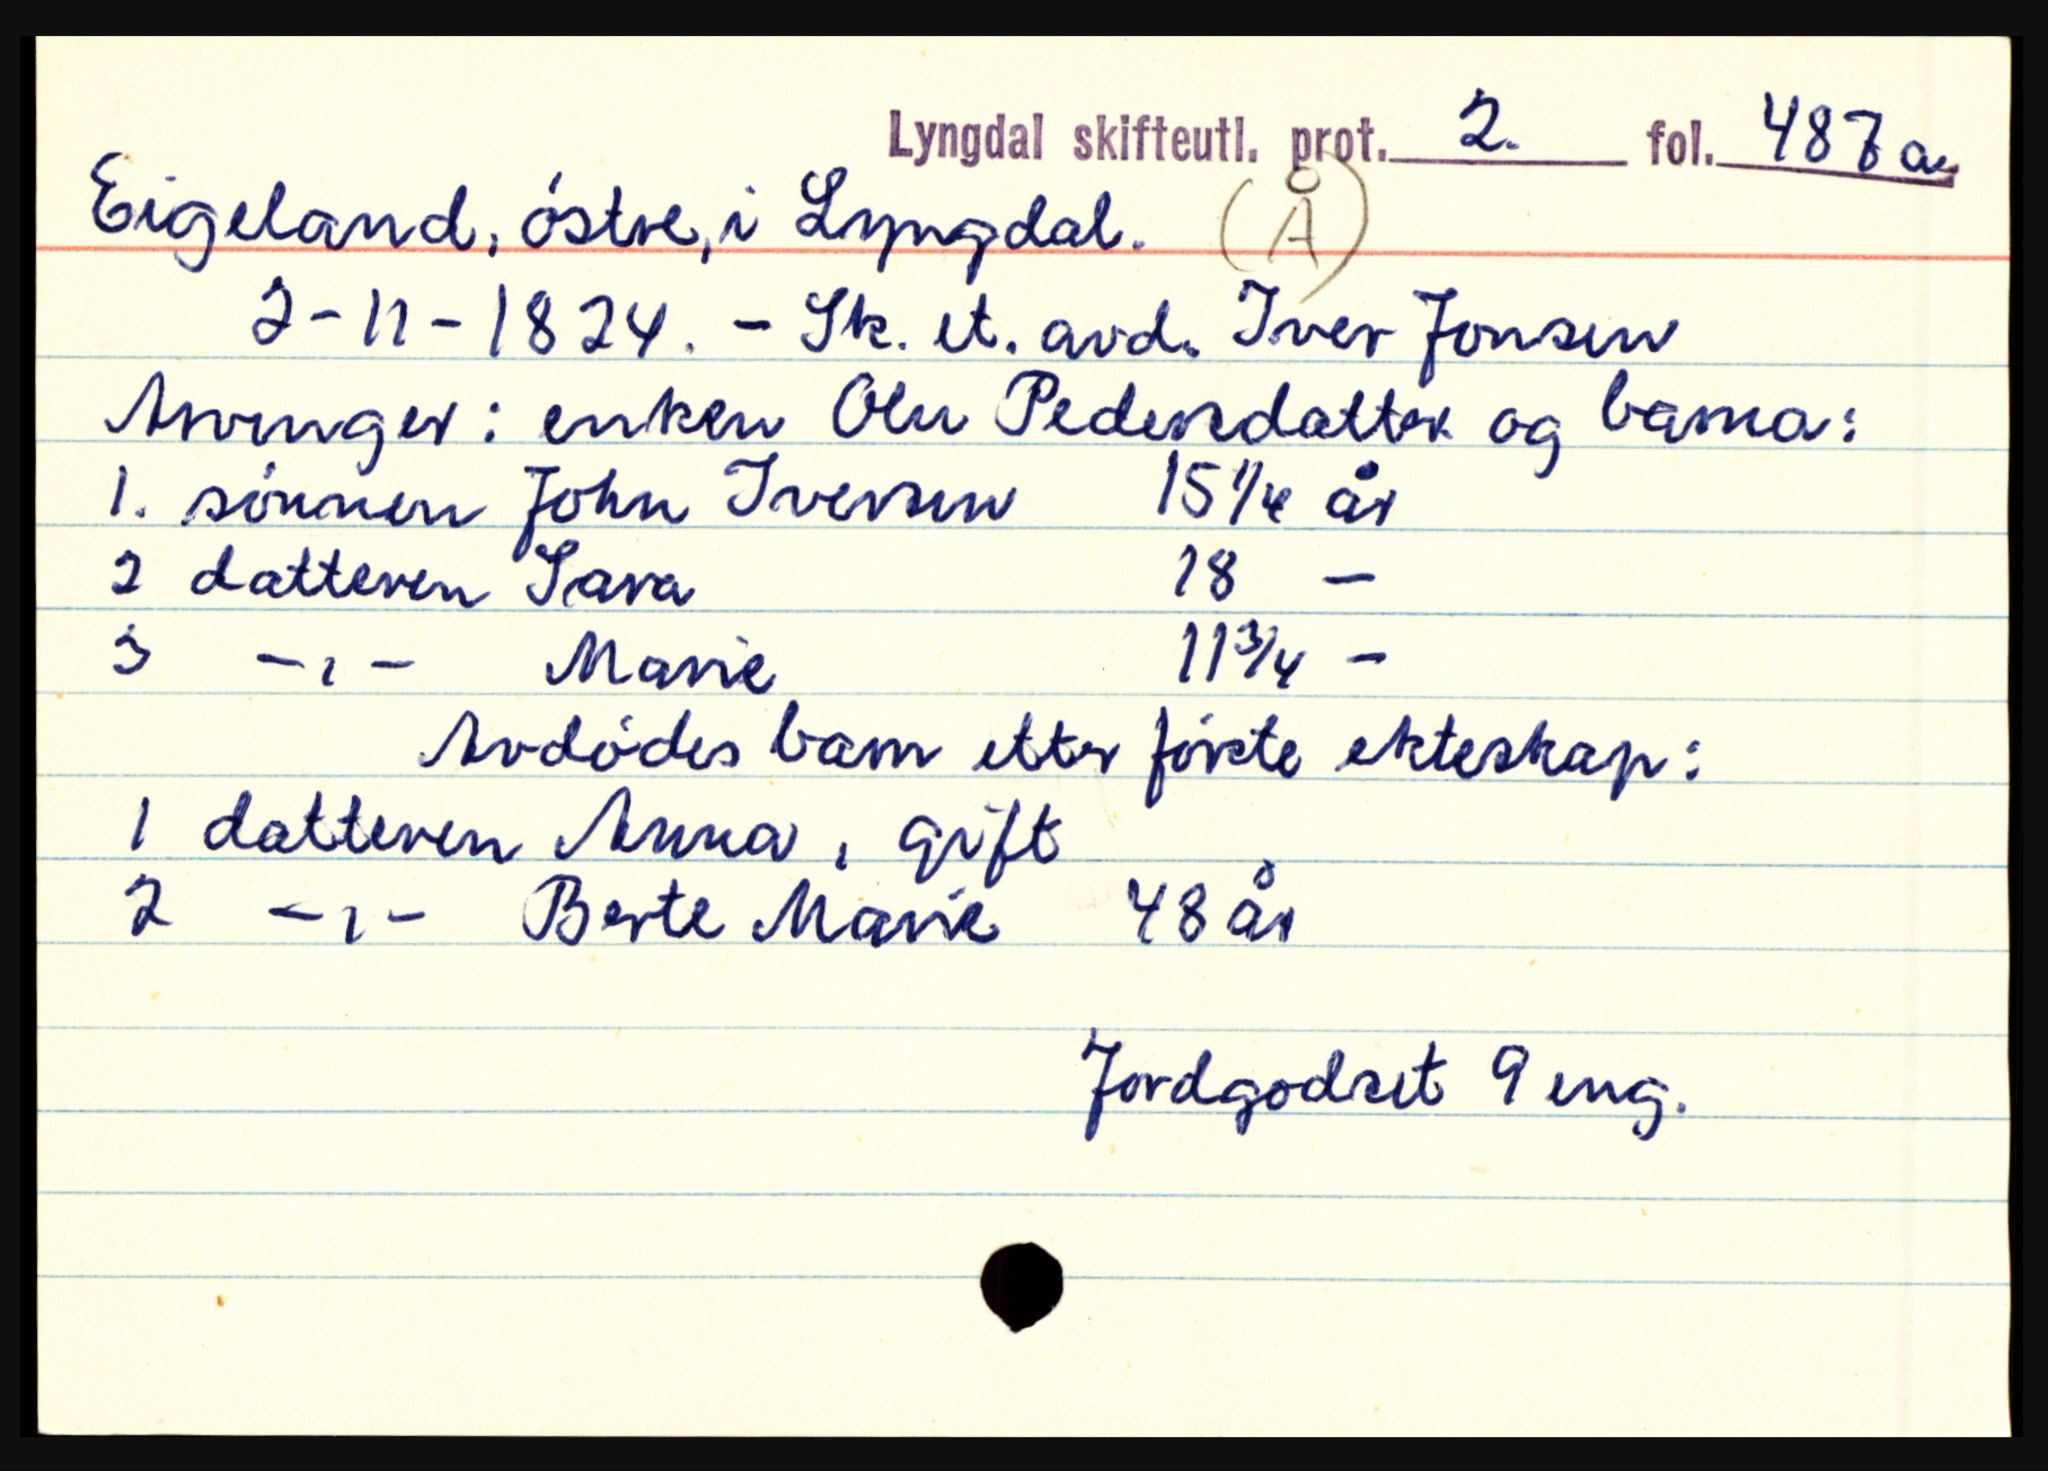 Lyngdal skifteutl. prot. 2. fol. 487a
Eigeland, östre, i Lyngdal. (Å)
2-11-1824. - Sk. et. avd. Iver Jonsen
Arvinger: enken Olu Pedersdatter og barna:
1. sönnen John Iversen 15 1/4 år
2 datteren Sara 18 -
3 -"- Marie 11 3/4 -
Avdödes barn etter förste ekteskap:
1 datteren Anna, gift
2 -"- Berte Marie 48 år
Jordgodset 9 eng.